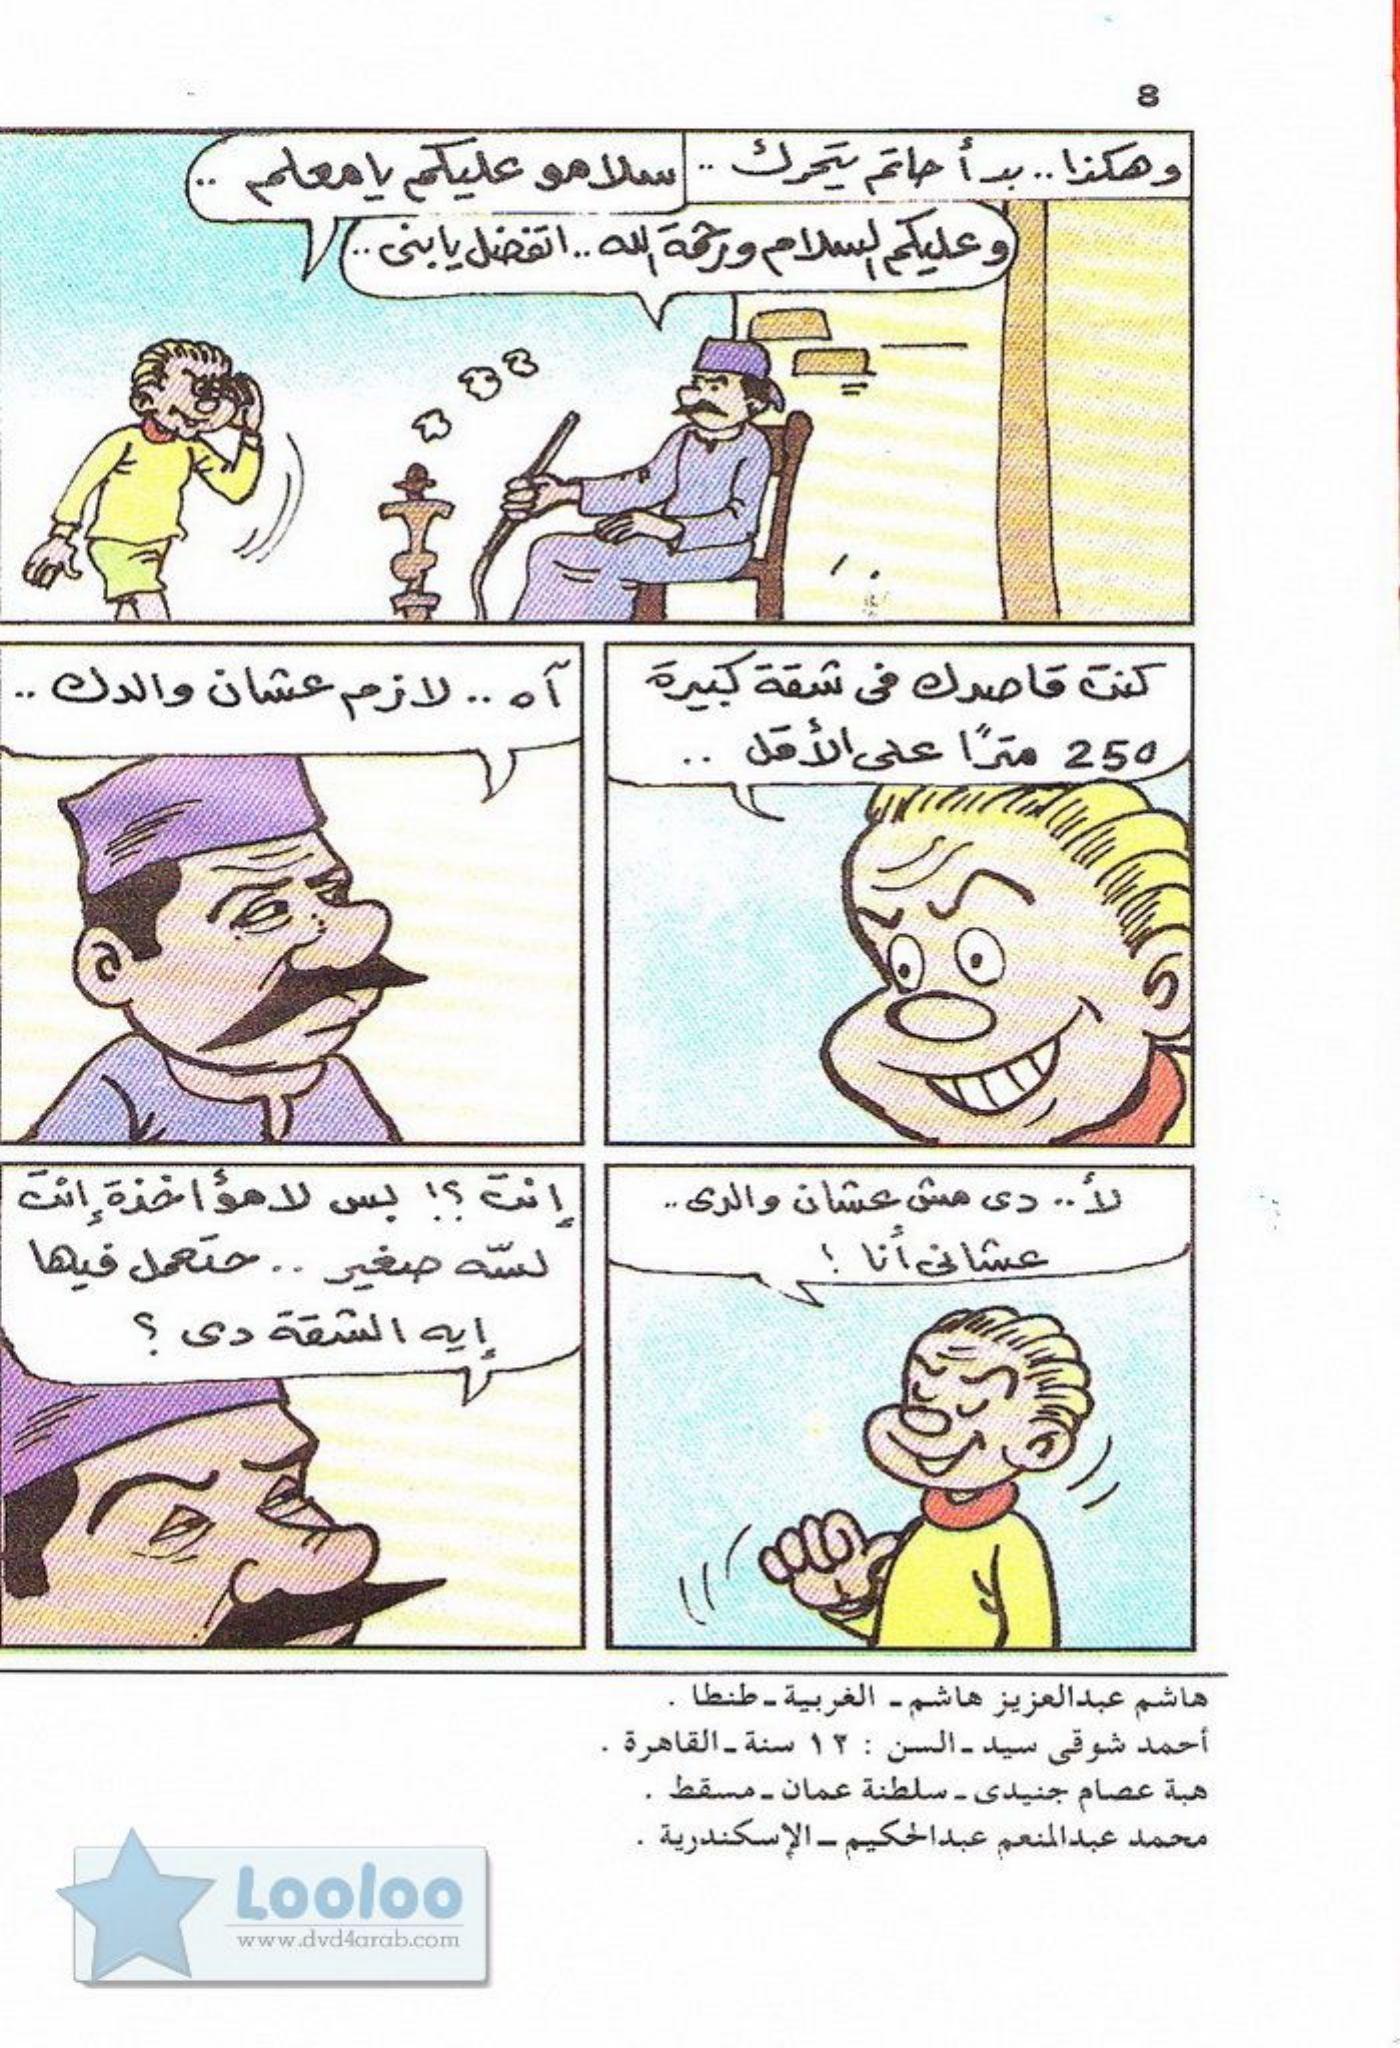 8
وهكذا.. بدأ حاتم يتحرك ..
سلامو عليكم يا معلم ..
وعليكم السلام ورحمة الله .. اتفضل يا بنى ..
كنت قاصدك فى شقة كبيرة
250 مترًا على الأقل ..
آه .. لازم عشان والدك ..
لأ.. دى مش عشان والدى ..
عشانى أنا !
إنت ؟! بس لا مؤاخذة إنت
لسّه صغير .. حتعمل فيها
إيه الشقة دى ؟
هاشم عبدالعزيز هاشم ـ الغربية ـ طنطا .
أحمد شوقى سيد ـ السن : ١٣ سنة ـ القاهرة .
هبة عصام جنيدى ـ سلطنة عمان ـ مسقط .
محمد عبدالمنعم عبدالحكيم ـ الإسكندرية .
Looloo
www.dvd4arab.com